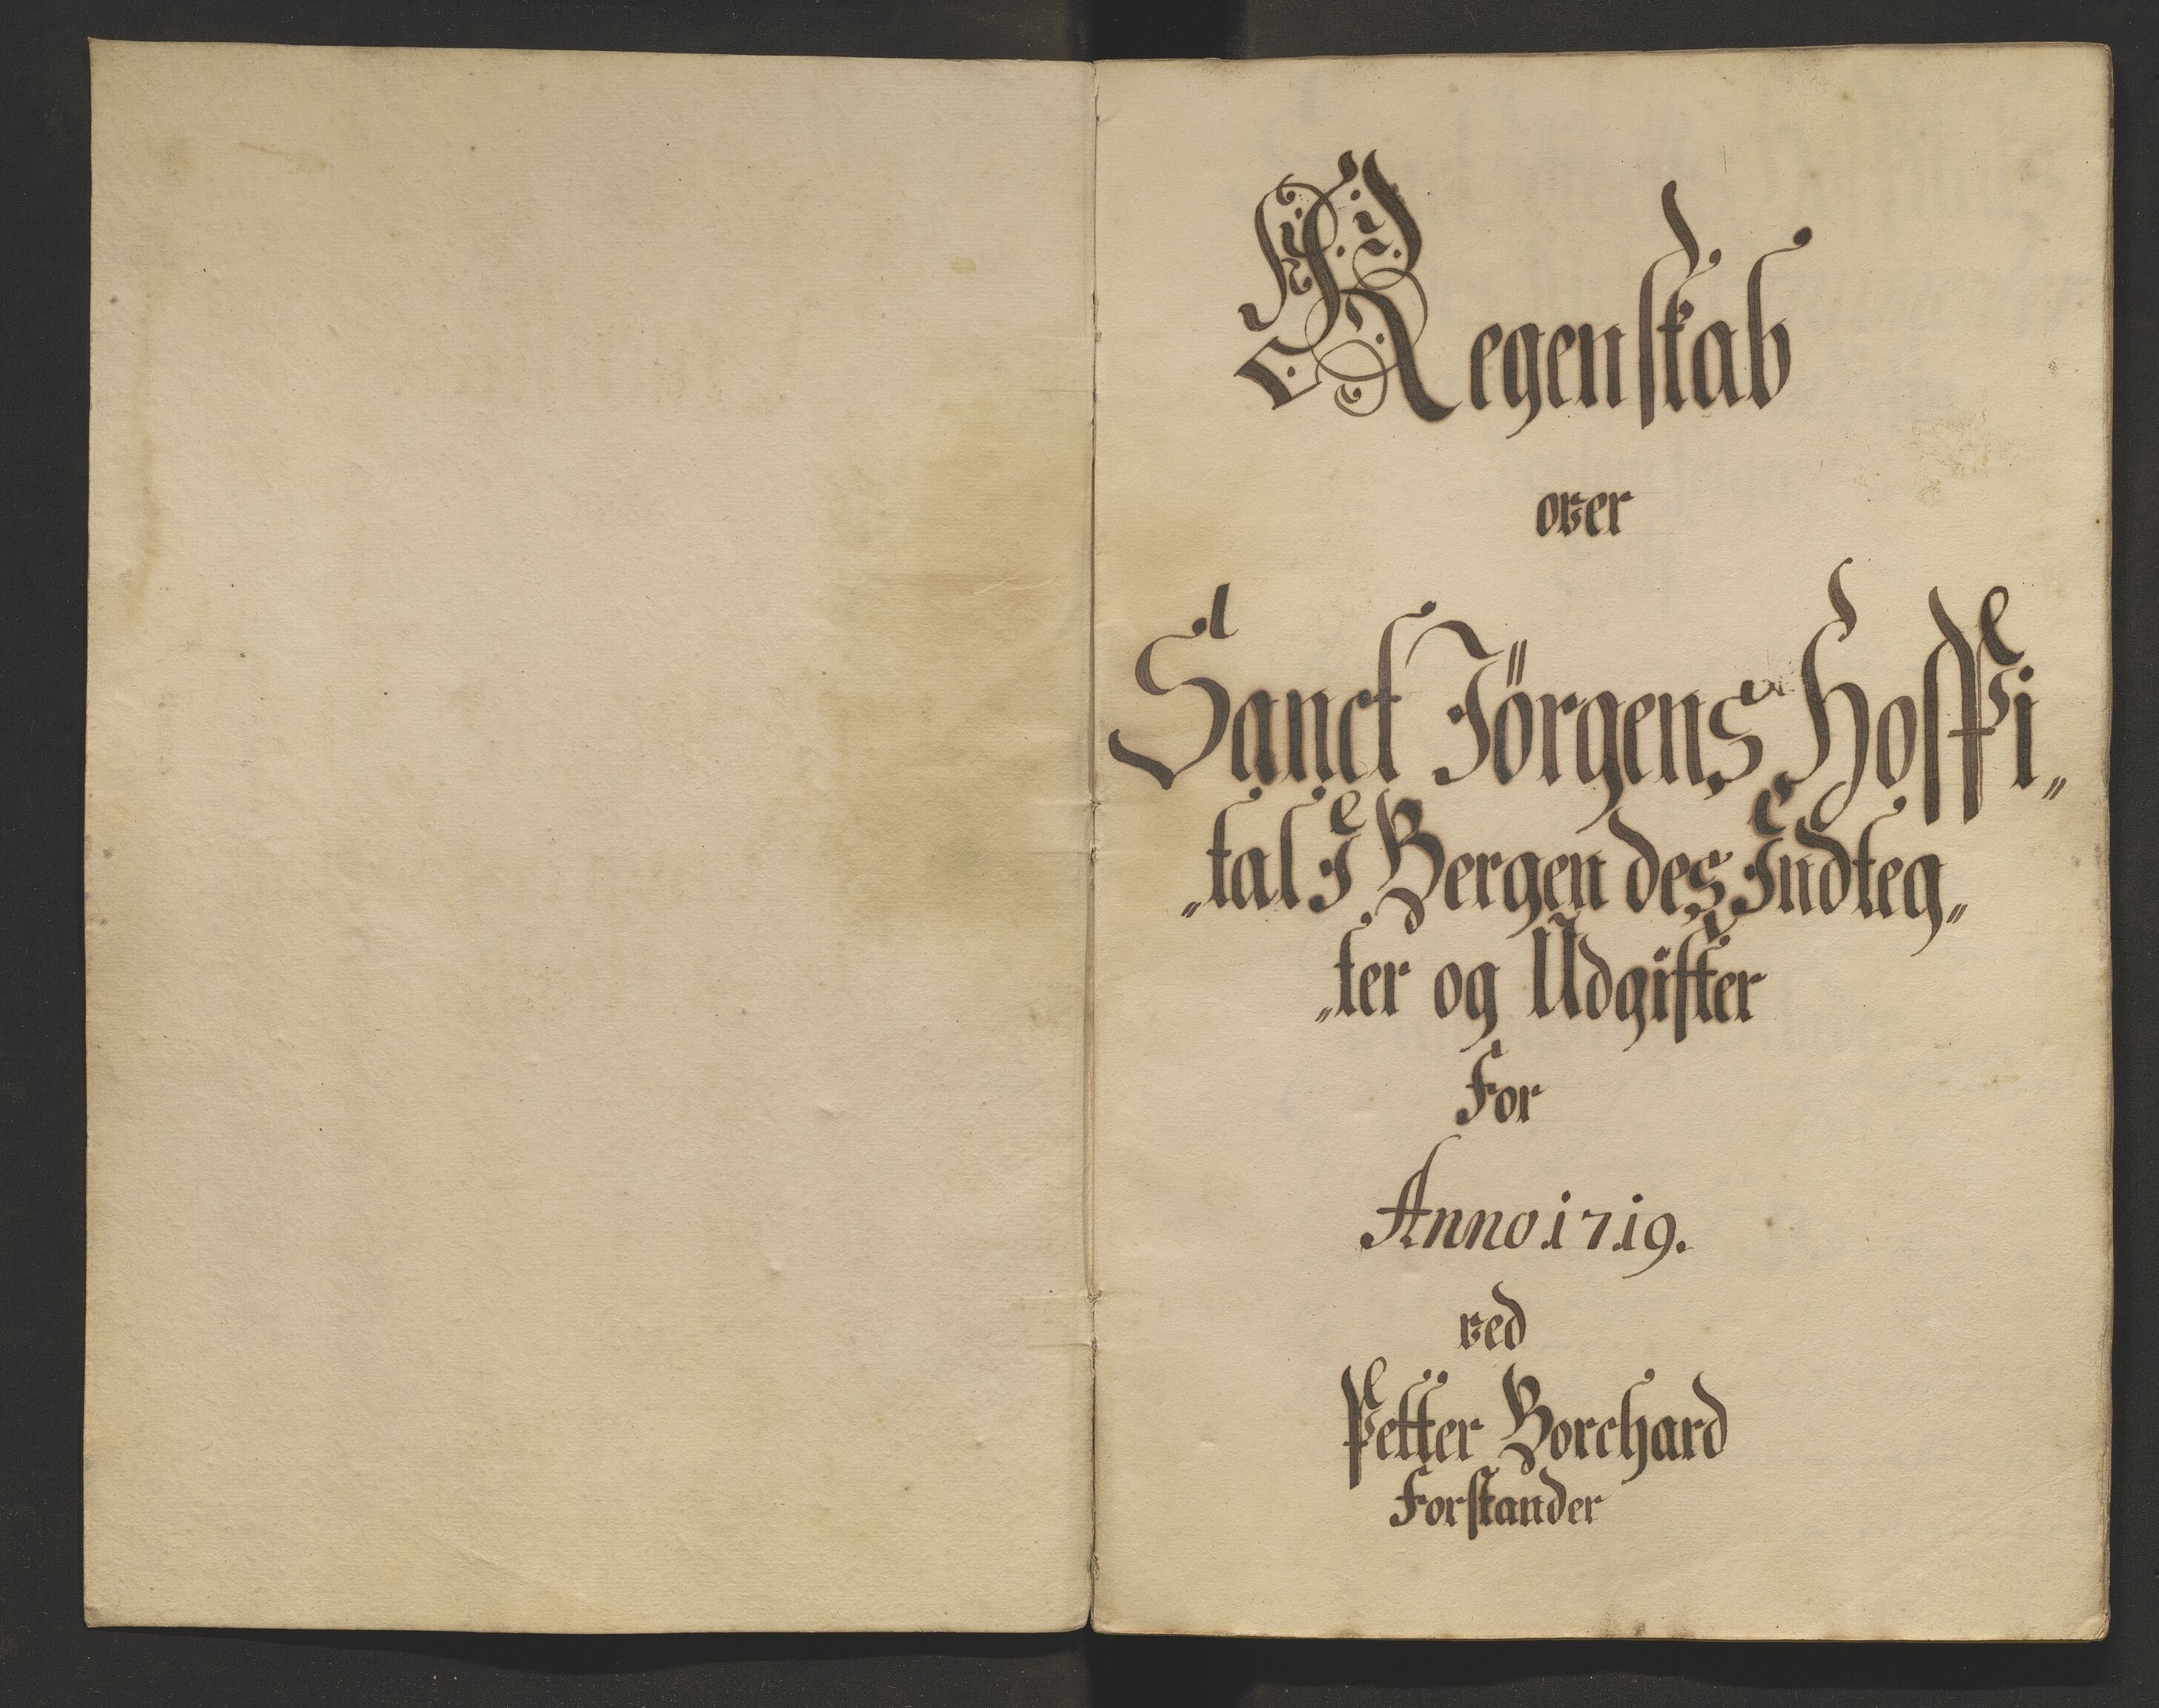 Regenskab
over
Sanct Jörgens Hospi„
„tal I Bergen des Indteg„
„ter og Udgifter
For
Anno 1719.
ved
Petter Borchard
Forstander